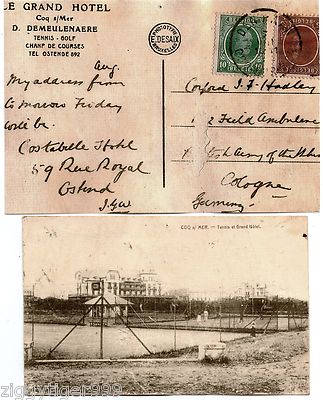 LE GRAND HOTEL
Coq s/Mer
D. DEMEULENAERE
TENNIS - GOLF
CHAMP DE COURSES
TEL OSTENDE 892
PHOTOTYPIE
E. DESAIX
BRUXELLES
Aug.
My address from
tomorrow Friday
will be
Costabelle Hotel
59 Rue Royal
Ostend
J.G.W
Corporal J. F. Hadley
Field Ambulance
British Army of the Rhine
Cologne
Germany
COQ s/ MER. — Tennis et Grand Hôtel.
ziggytiger999